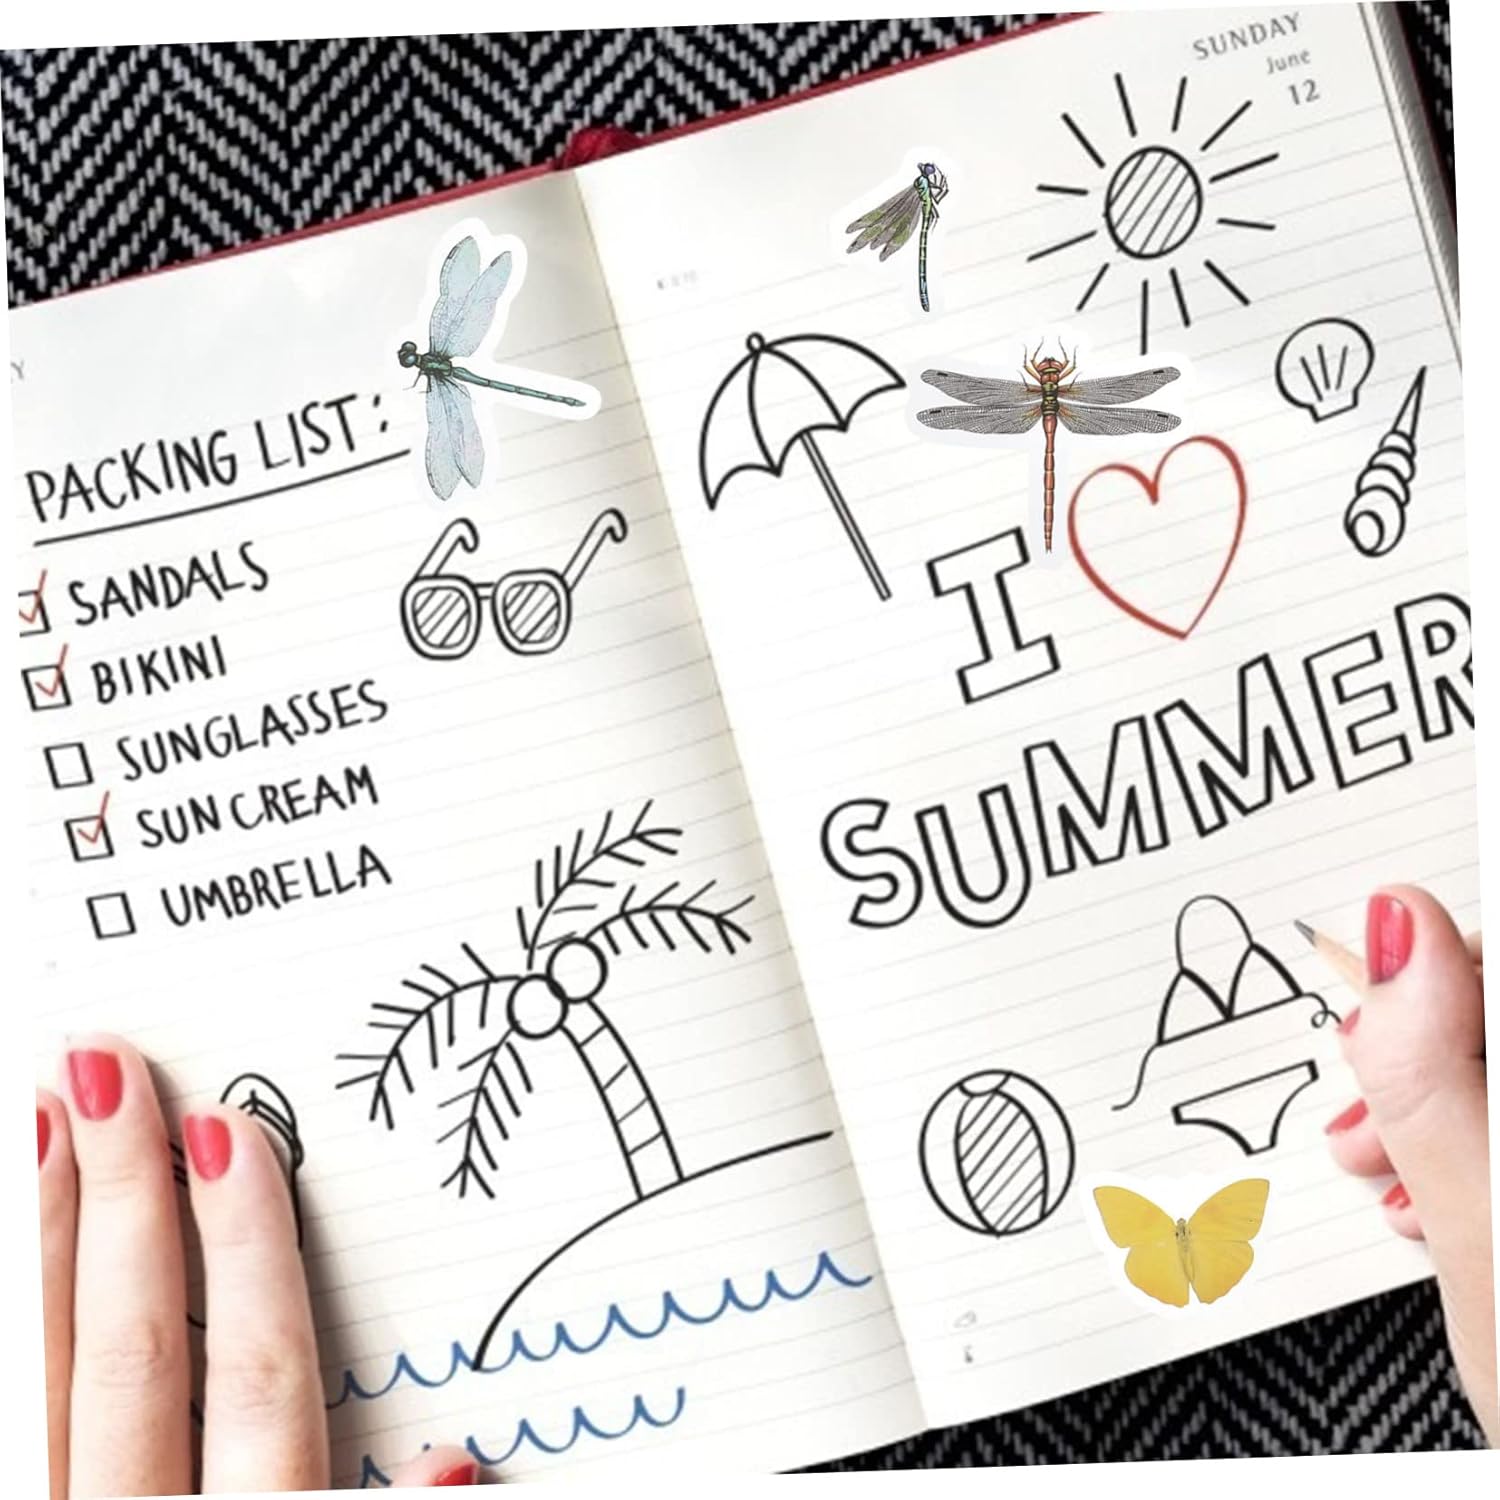 PACKING LIST:
SANDALS
BIKINI
SUNGLASSES
SUN CREAM
UMBRELLA
SUNDAY
June
12
I
SUMMER